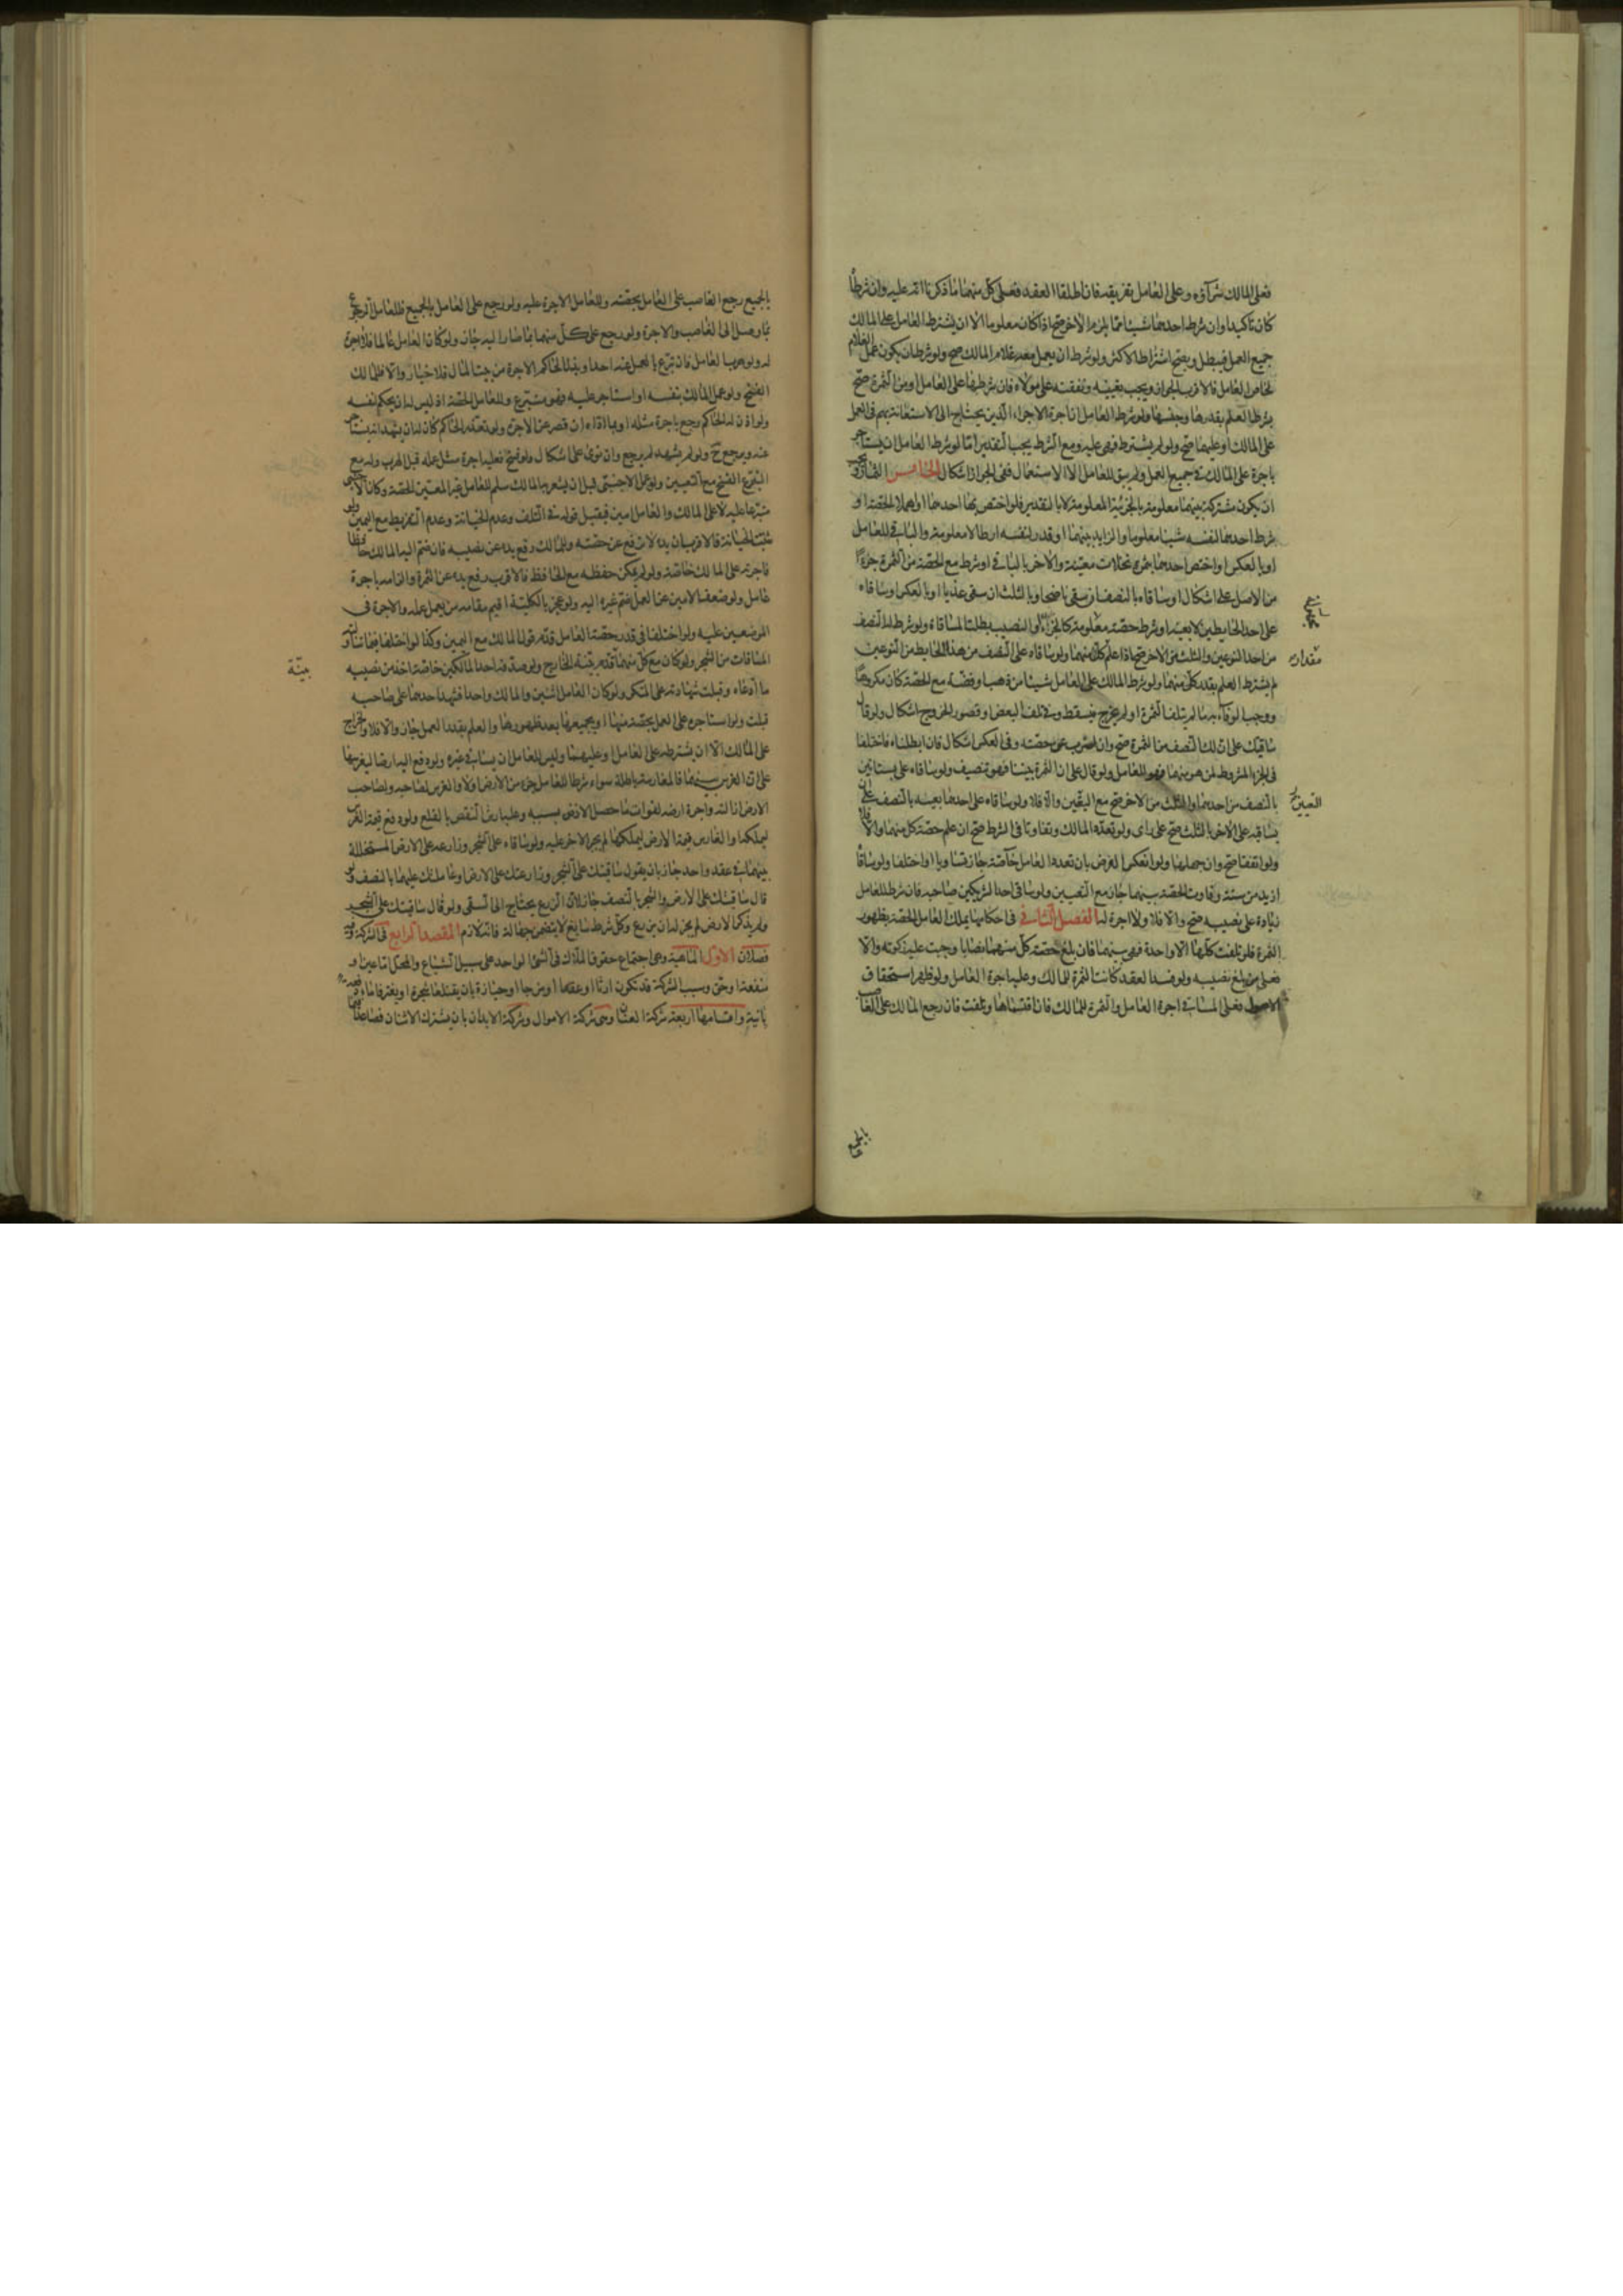 فعلى المالك شراؤه وعلى العامل تفريقه فان اطلقا العقد فعلى كل منهما ما ذكرنا انه عليه وان شرطا
كان تاكيدا وان شرط احدهما شيئا مما يلزم الاخر صح اذا كان معلوما الا ان يشترط العامل على المالك
جميع العمل فيبطل ويصح اشتراط الاكثر ولو شرط ان يعمل معه غلام المالك صح ولو شرط ان يكون عمل الغلام
لخاص العامل فالاقرب الجواز ويجب تعيينه ونفقته على مولاه فان شرطها على العامل او من الثمرة صح
بشرط العلم بقدرها وجنسها ولو شرط العامل ان اجرة الاجراء الذين يحتاج الى الاستعانة بهم في العمل
على المالك او عليهما صح ولو لم يشترط فهي عليه ومع الشرط يجب التقدير اما لو شرط العامل ان يستاجر
باجرة على المالك في جميع العمل ولم يبق للعامل الا الاستعمال ففي الجواز اشكال الخامس الثمار ويجب
ان يكون مشتركة بينهما معلومة بالجزئية المعلومة لا بالتقدير فلو اختص بها احدهما او اهملا الحصة او
شرط احدهما لنفسه شيئا معلوما والزايد بينهما او قدر لنفسه ارطالا معلومة والباقي للعامل
او بالعكس او اختص احدهما بثمرة نخلات معينة والاخر بالباقي او شرط مع الحصة من الثمرة جزءا
من الاصل على اشكال او ساقاه بالنصف ان سقى ناضحا وبالثلث ان سقى عذيا او بالعكس او ساقاه
على احد الحايطين لا بعينه او شرط حصة معلومة كالجزء او النصيب بطلت المساقاة ولو شرط له النصف
من احد النوعين والثلث من الاخر صح اذا علم كل منهما ولو ساقاه على النصف من هذا الحايط من النوعين
لم يشترط العلم بقدر كل منهما ولو شرط المالك على العامل شيئا من ذهب او فضة مع الحصة كان مكروها
ووجب الوفاء به ما لم يتلف الثمرة او لم يخرج فيسقط وفي تلف البعض او قصور الخروج اشكال ولو قال
ساقيتك على ان لك النصف من الثمرة صح وان اضرب عن حصته وفي العكس اشكال فان ابطلناه فاختلفا
في الجزء المشروط لمن هو منهما فهو للعامل ولو قال على ان الثمرة بيننا فهو تنصيف ولو ساقاه على بستانين
بالنصف من احدهما والثلث من الاخر صح مع التعيين والا فلا ولو ساقاه على احدهما بعينه بالنصف على ان
يساقيه على الاخر بالثلث صح على راى ولو تعدد المالك وتفاوتا في الشرط صح ان علم حصة كل منهما والا فلا
ولو اتفقا صح وان جهلهما ولو انعكس الفرض بان تعدد العامل خاصة جاز تساويا او اختلفا ولو ساقاه
ازيد من سنة وفاوت الحصة بينهما جاز مع التعيين ولو ساقى احد الشريكين صاحبه فان شرط للعامل
زيادة على نصيبه صح والا فلا ولا اجرة له الفصل الثاني في احكامها يملك العامل الحصة بظهور
الثمرة فلو تلفت كلها الا واحدة فهي بينهما فان بلغ حصة كل منهما نصابا وجبت عليه زكوته والا
فعلى من بلغ نصيبه ولو فسد العقد كانت الثمرة للمالك وعليه اجرة العامل ولو ظهر استحقاق
الاصول فعلى المساقي اجرة العامل والثمرة للمالك فان اقتسماها وتلفت فان رجع المالك على الغاصب
مقداره
التعيين
بالجميع
بالجميع رجع الغاصب على العامل بحصته وللعامل الاجرة عليه ولو رجع على العامل بالجميع فللعامل الرجوع
بما وصل الى الغاصب والاجرة ولو رجع على كل منهما بما صار اليه جاز ولو كان العامل عالما فلا اجرة
له ولو هرب العامل فان تبرع بالعمل عنه احد او بذل الحاكم الاجرة من بيت المال فلا خيار والا فللمالك
الفسخ ولو عمل المالك بنفسه او استاجر عليه فهو متبرع وللعامل الحصة اذ ليس له ان يحكم لنفسه
ولو اذن له الحاكم رجع باجرة مثله او بما اداه ان قصر عن الاجرة ولو تعذر الحاكم كان له ان يشهد انه يستاجر
عنه ويرجع ح ولو لم يشهد لم يرجع وان نوى على اشكال ولو فسخ فعليه اجرة مثل عمله قبل الهرب وله مع
المتبرع الفسخ مع التعيين ولو عمل الاجنبي قبل ان يشعر به المالك سلم للعامل غير المعين الحصة وكان الاجنبي
متبرعا عليه لا على المالك والعامل امين فيقبل قوله في التلف وعدم الخيانة وعدم التفريط مع اليمين ولو
ثبتت الخيانة فالاقرب ان يده لا ترفع عن حصته وللمالك رفع يده عن نصيبه فان ضم اليه المالك حافظا
فاجرته على المالك خاصة ولو لم يمكن حفظه مع الحافظ فالاقرب رفع يده عن الثمرة والزامه باجرة
عامل ولو ضعف الامين عن العمل ضم غيره اليه ولو عجز بالكلية اقيم مقامه من يعمل عمله والاجرة في
الموضعين عليه ولو اختلفا في قدر حصة العامل قدم قول المالك مع اليمين وكذا لو اختلفا فيما تناولته
المساقات من الشجر ولو كان مع كل منهما قدم بينة الخارج ولو صدقه احد المالكين خاصة اخذ من نصيبه
ما ادعاه وقبلت شهادته على المنكر ولو كان العامل اثنين والمالك واحدا فشهد احدهما على صاحبه
قبلت ولو استاجره على العمل بحصة منها او بجميعها بعد ظهورها والعلم بقدر العمل جاز والا فلا والخراج
على المالك الا ان يشترطه على العامل او عليهما وليس للعامل ان يساقي غيره ولو دفع اليه ارضا ليغرسها
على ان الغرس بينهما فالمغارسة باطلة سواء شرط للعامل جزء من الارض او لا والغرس لصاحبه ولصاحب
الارض ازالته واجرة ارضه لفوات ما حصل الارض بسببه وعليه ارش النقص بالقلع ولو دفع قيمة الغرس
ليملكه او الغارس قيمة الارض ليملكها لم يجبر الاخر عليه ولو ساقاه على الشجر وزارعه على الارض المتخللة
بينهما في عقد واحد جاز بان يقول ساقيتك على الشجر وزارعتك على الارض او عاملتك عليهما بالنصف ولو
قال ساقيتك على الارض والشجر بالنصف جاز لان الزرع يحتاج الى السقى ولو قال ساقيتك على الشجر
ولم يذكر الارض لم يجز له ان يزرع وكل شرط سايغ لا يتضمن جهالة فانه لازم المقصد الرابع في الشركة وفيه
فصلان الاول الماهية وهي اجتماع حقوق الملاك في الشئ الواحد على سبيل الشياع والمحل اما عين او
منفعة او حق وسبب الشركة قد تكون ارثا او عقدا او مزجا او حيازة بان يقتلعا شجرة او يغترفا ماء دفعة
بانية واقسامها اربعة شركة العنان وهي شركة الاموال وشركة الابدان بان يشترك الاثنان فصاعدا
بينة